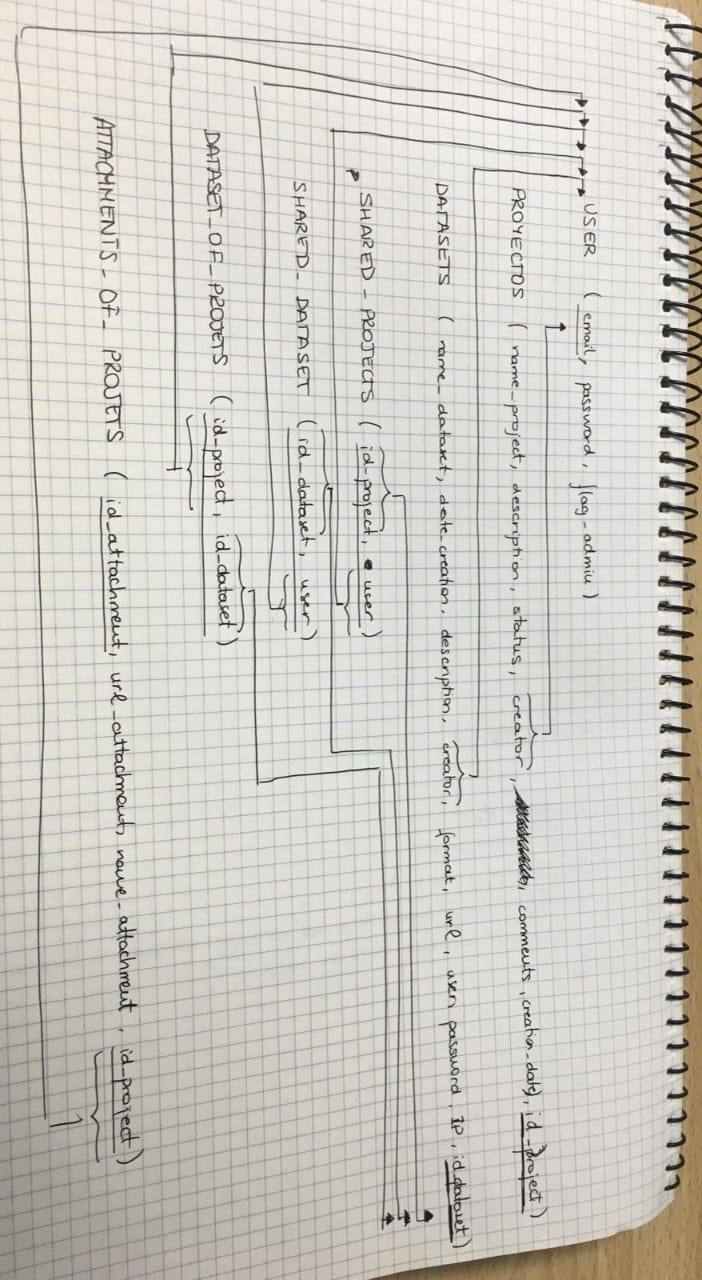 USER ( email, password, flag-admin )
PROYECTOS ( name_project, description, status, creator, comments, creation_date, id_project )
DATASETS ( name_dataset, date_creation, description, creator, format, url, user, password, IP, id_dataset )
SHARED - PROJECTS ( id-project, user )
SHARED_ DATASET ( id_dataset, user )
DATASET_OF_PROJETS ( id-project, id-dataset )
ATTACHMENTS_OF_ PROJETS ( id_attachment, url_attachment, name_attachment, id-project )